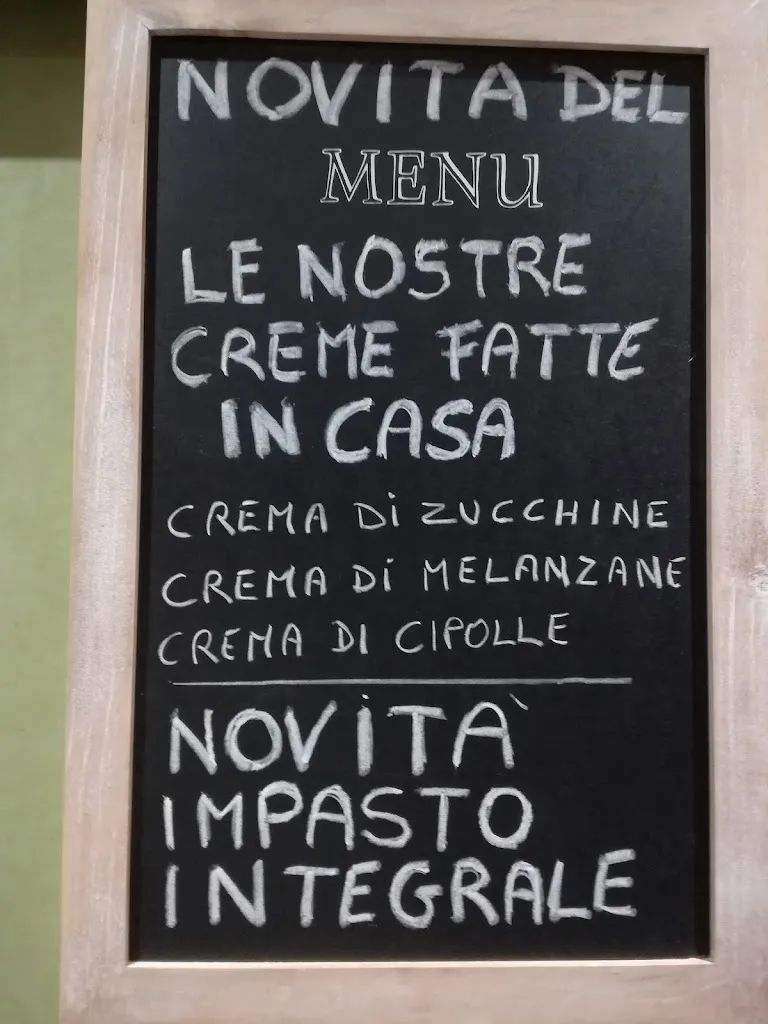 NOVITA DEL
MENU
LE NOSTRE
CREME FATTE
IN CASA
CREMA Di ZUCCHINE
CREMA Di MELANZANE
CREMA DI CIPOLLE
NOViTÀ
IMPASTO
INTEGRALE